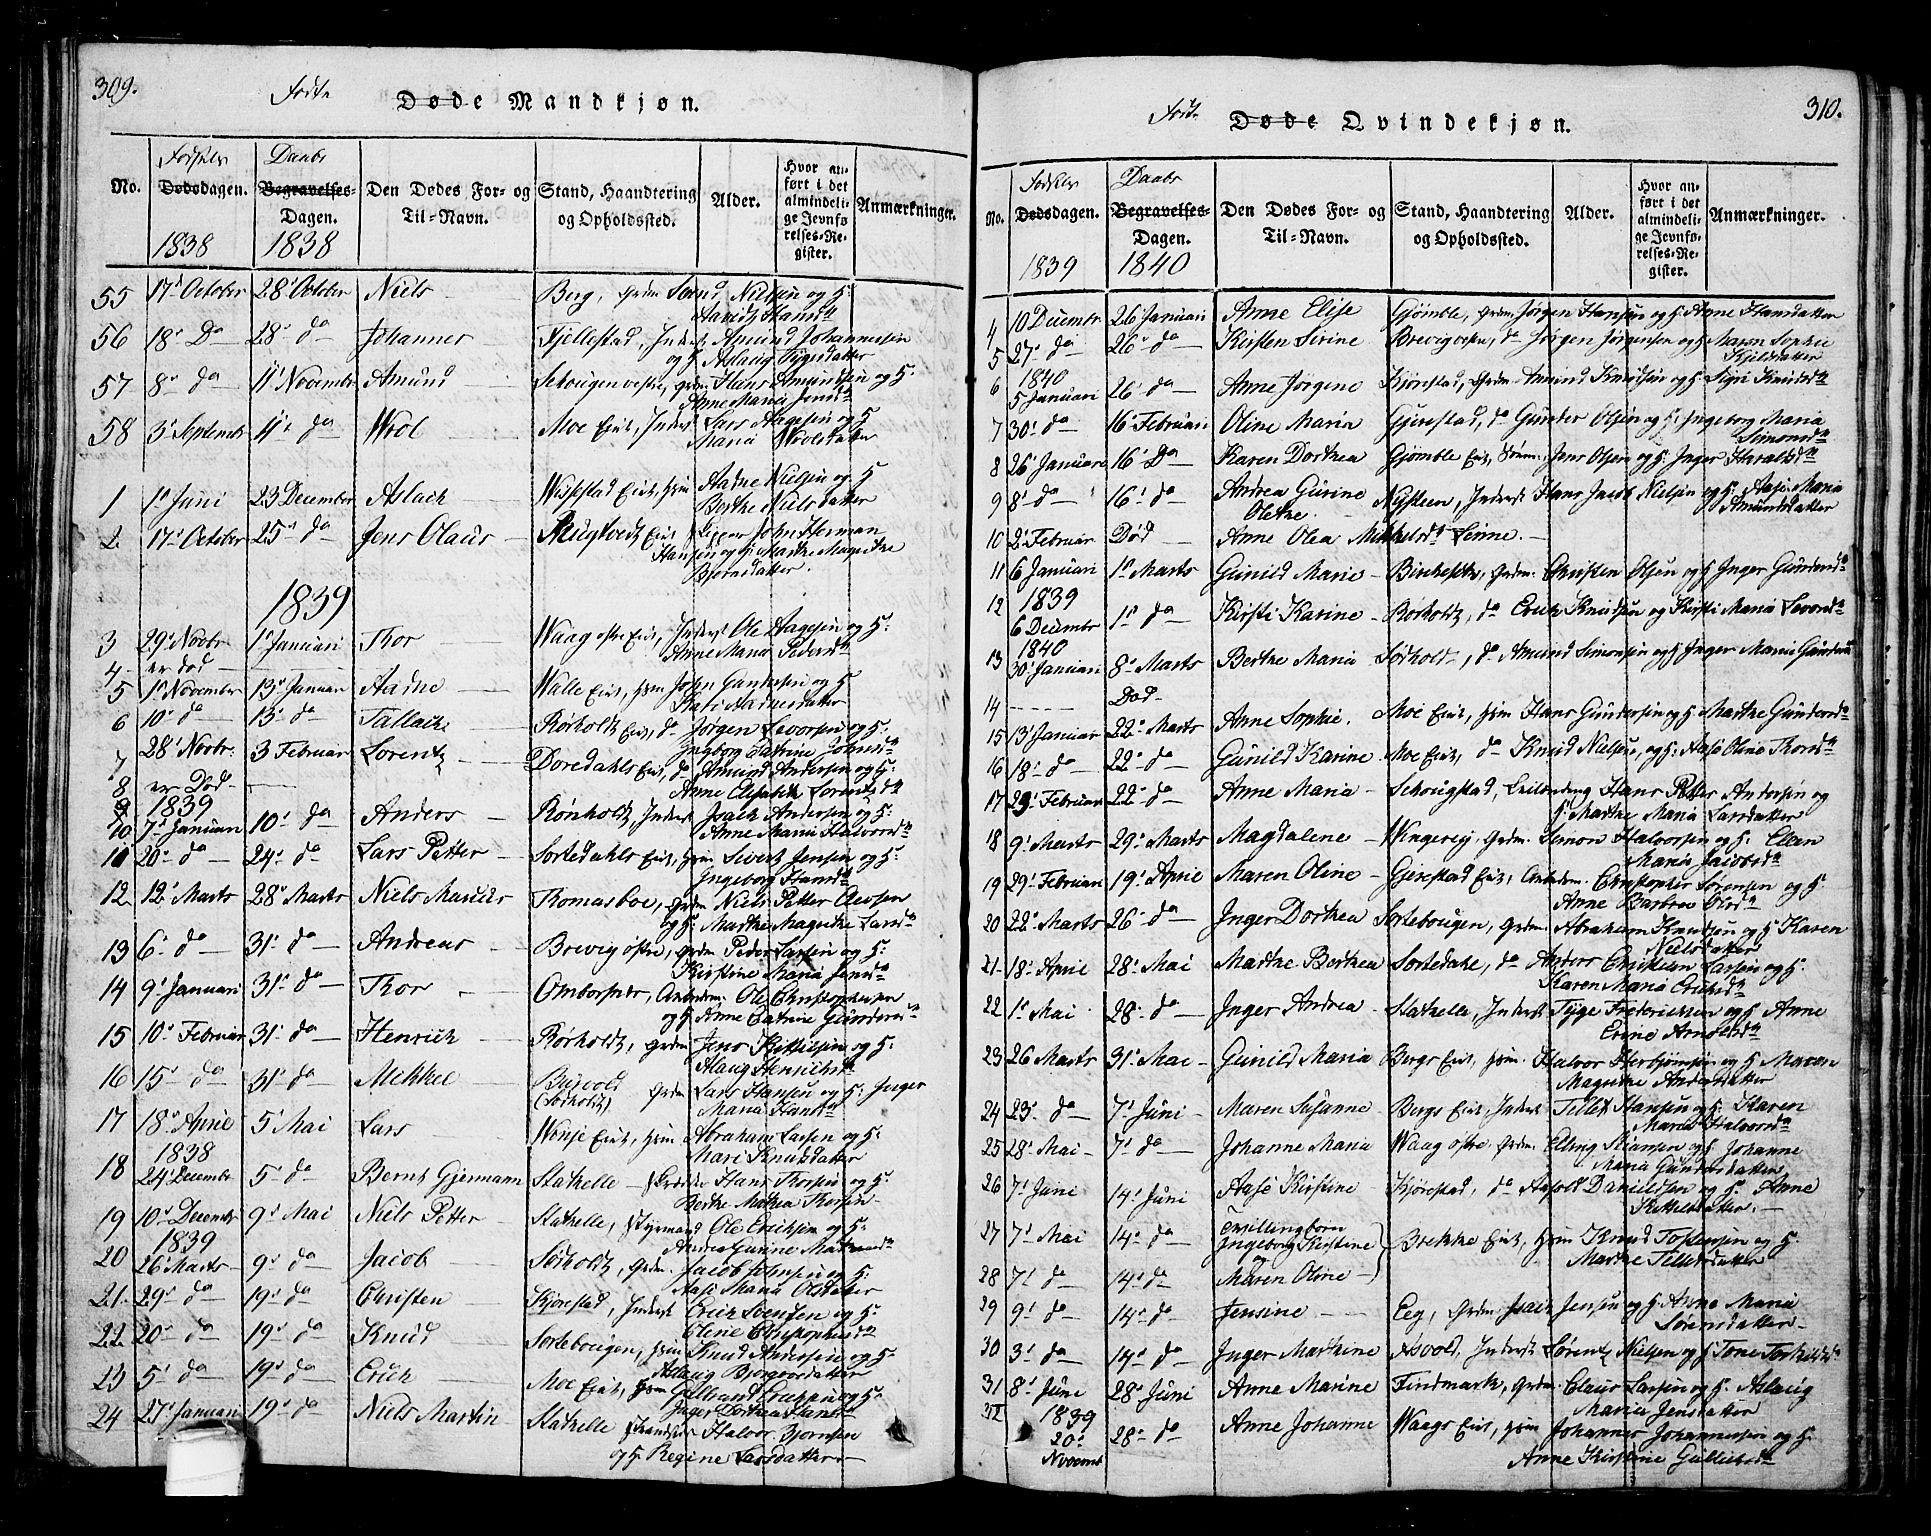 309.
Fødte
Døde Mandkjøn.
No.
Fødsels
Dødsdagen.
1838
Daabs
Begravelses-
Dagen.
1838
Den Dødes For- og
Til-Navn.
Stand, Haandtering
og Opholdssted.
Alder.
Hvor an-
ført i det
almindeli-
ge Jevnfø-
relses-Re-
gister.
Anmærkninger.
55 17' October 28' October Niels Berg, Grdm Svend Nielsen og H:
56 18' Do 28' do Johannes Fjellestad, Inderst Amund Johannesen
og H Aslaug
57 8' do 11' Novembr Amund Grdm Hans Amundsen og H:
Anne Maria
58 3' Septembr 11' do Wrol Moe Eiet, Inderst Lars Aagesen og H
Maria Wrolsdatter
1 1' Juni 23 December Aslach Eiet, Hsm Aadne Nielsen og H
Berthe Nielsdatter
2 17' October 25' do Jens Olaus Eiet John Herman
Hansen og H: Marthe Magrethe
Bjørnsdatter.
1839
3 29' Novbr 1' Januari Thor Waag østre Eiet, Inderst Ole Aagesen og H:
Anne Maria Pedersdr
4 er død
5 1' November 13' Januar Aadne Walle Eiet, Hsm og H
Aadnesdatter
6 10' do 13' do Tallack Rørholt Eiet, do Jørgen Levorsen og H:
Ingeborg Catrine
7 28' Novbr. 3 Februar Lorentz Doredahls Eiet, do Amund Andersen og H:
Anne Elisabeth Lorentzdr
8 er Død
9 1839
10 7' Januari 10' do Anders Rønholt, Inderst Isach Andersen og H:
Anne Maria Halvorsdr
11 20' do 24' do Lars Petter Sortedahls Eiet, Hsm Sivert Jensen og H:
Ingeborg Hansdr
12 12' Marts 28' Marts Niels Marius Thomasboe, Grdm Niels Petter
og H: Marthe Magrethe Larsdr
13 6' do 31' do Andreas Brevig østre, Grdm Peder Larsen og H:
Kirstine Maria
14 9' Januari 31' do Thor Ole Christophersen
og H: Anne Catrine Gundersdr
15 10' Februar 31' do Henrich Rørholt, Grdm Jens Kittilsen og H:
Aslaug Henrichsdr
16 15' do 31' do Mikkel
(Sørholt) Grdm Lars Hansen og H: Inger
Maria Hansdr
17 18' April 5' Mai Lars Eiet, Hsm Abraham Larsen og H:
Mari Knudsdatter
18 1838
24' Decembr 5' do Bernt Gjermann Stathelle Hans Thorsen og H:
Berthe Mathea
19 10' Decembr 9' Mai Niels Petter Stathelle, Styrmand Ole Erichsen og H:
20 1839
26' Marts 9' do Jacob Sørholt, Grdm Jacob Johnsen og H:
Aase Maria Olsdatter
21 29' do 19' do Christen Kjørestad, Inderst Erich Svensen og H:
Oline Christophersdr
22 20' do 19' do Knud Sortebougen, Hsm Knud Andersen og H:
Aslaug
23 5' do 19' do Erich Moe Eiet, Hsm og H:
Inger Dorthea
24 27' Januari 19' do Niels Martin Stathelle Halvor Bjørnsen
og H: Regine Larsdatter
310.
Fødte
Døde Qvindekjøn.
No.
Fødsels
Dødsdagen.
1839
Daabs
Begravelses-
Dagen.
1840
Den Dødes For- og
Til-Navn.
Stand, Haandtering
og Opholdssted.
Alder.
Hvor an-
ført i det
almindeli-
ge Jevnfø-
relses-Re-
gister.
Anmærkninger.
4 10 Decembr 26' Januari Anne Elise Gjømble, Grdm Jørgen Hansen og H: Anne Hansdatter
5 27' do 26' do Kirsten Serine Brevig vestre, do Jørgen Jørgensen og H Maren Sophie
6 1840
5 Januari 26' do Anne Jørgine Kjørestad, Grdm Amund Knudsen og H: Knudsdr
7 30' do 16' Februari Oline Maria Gjerestad, do Gunder Olsen og H: Ingeborg Maria
Simonsdr
8 26' Januari 16' Do Karen Dorthea Gjømble Eiet, Jens Olsen og H: Inger
9 8' do 16' do Andrea Gurine
Olethe Nysteen, Inderst Hans Jacob Nielsen og H: Aase Maria
Amundsdatter
10 2' Februar Død Anne Olea Mikkelsdr
11 6 Januari 1' Marts Gunild Marie Grdm. Christen Olsen og H Inger Gundersdr
12 1839
6 Decembr 1' do Kirsti Karine Rørholt, do Erich Knudsen og Kirsti Maria Levorsdr
13 1840
30' Januari 8' Marts Berthe Maria Sørholt, do Amund Simonsen og H Inger Maria Gundersdr
14 Død
15 13' Januar 22' Marts Anne Sophie. Moe Eiet, Hsm Hans Gundersen og H: Marthe Gundersdr
16 18' do 22' do Gunild Karine Moe Eiet, do Knud Nielsen, og H: Aase Oline Thorsdr
17 29' Februari 22' do Anne Maria Schougstad, Hans Petter Andersen og
H: Marthe Maria Larsdatter
18 9' Marts 29' Marts Magdalene Grdm. Simon Halvorsen og H: Ellen
Maria Jacobsdr
19 29' Februari 19' April Maren Oline Gjerestad Eiet, Christopher Sørensen og H:
Anne Barbra Olsdr
20 22' Marts 26' do Inger Dorthea Sortebougen, Grdm. Abraham Knudsen og H Karen
Nielsdatter
21 18' April 28' Mai Marthe Berthea Sortedale, do Anders Christian Larsen og H:
Karen Maria
22 1' Mai 28' do Inger Andrea Stathelle, Inderst Tyge Frederichsen og H: Anne
Erine Arnoldsdr
23 26 Marts 31' Mai Gunild Maria Bergs Eiet, Hsm. Halvor Herbjørnsen og H Maren
Magrethe Andersdatter
24 23' do 7' Juni Maren Susanne Bergs Eiet, Inderst Tellef Hansen og H: Karen
Maria Halvorsdr
25 28' Mai 7' do Johanne Maria Waag østre, Grdm. Elling Stiansen og H Johanne
Maria Gundersdatter
26 7' Juni 14' Juni Aase Kirstine Kjørestad, do Aasold Danielsen og H: Anne
Kittelsdatter.
27 7' Mai 14' do Tvillingborn
Ingeborg Kirstine
og Brekke Eiet, Hsm Knud Tostensen og H:
Marthe Tellefsdatter
28 7' do 14' do Maren Oline
29 9' do 14' do Jensine Eeg, Grdm Isach Jensen og H Anne Maria
Sørensdatter
30 3' do 14' do Inger Marthine Aasvold, Inderst Sørent Nielsen og H Tone
31 8' Juni 28' Juni Anne Marine Findmark, Grdm. Claus Larsen og H: Aslaug
Maria Jensdatter
32 1839
20'
Novembr 28' do Anne Johanne Waags Eiet, Hsm Johannes Johannesen og H:
Anne Kirstine